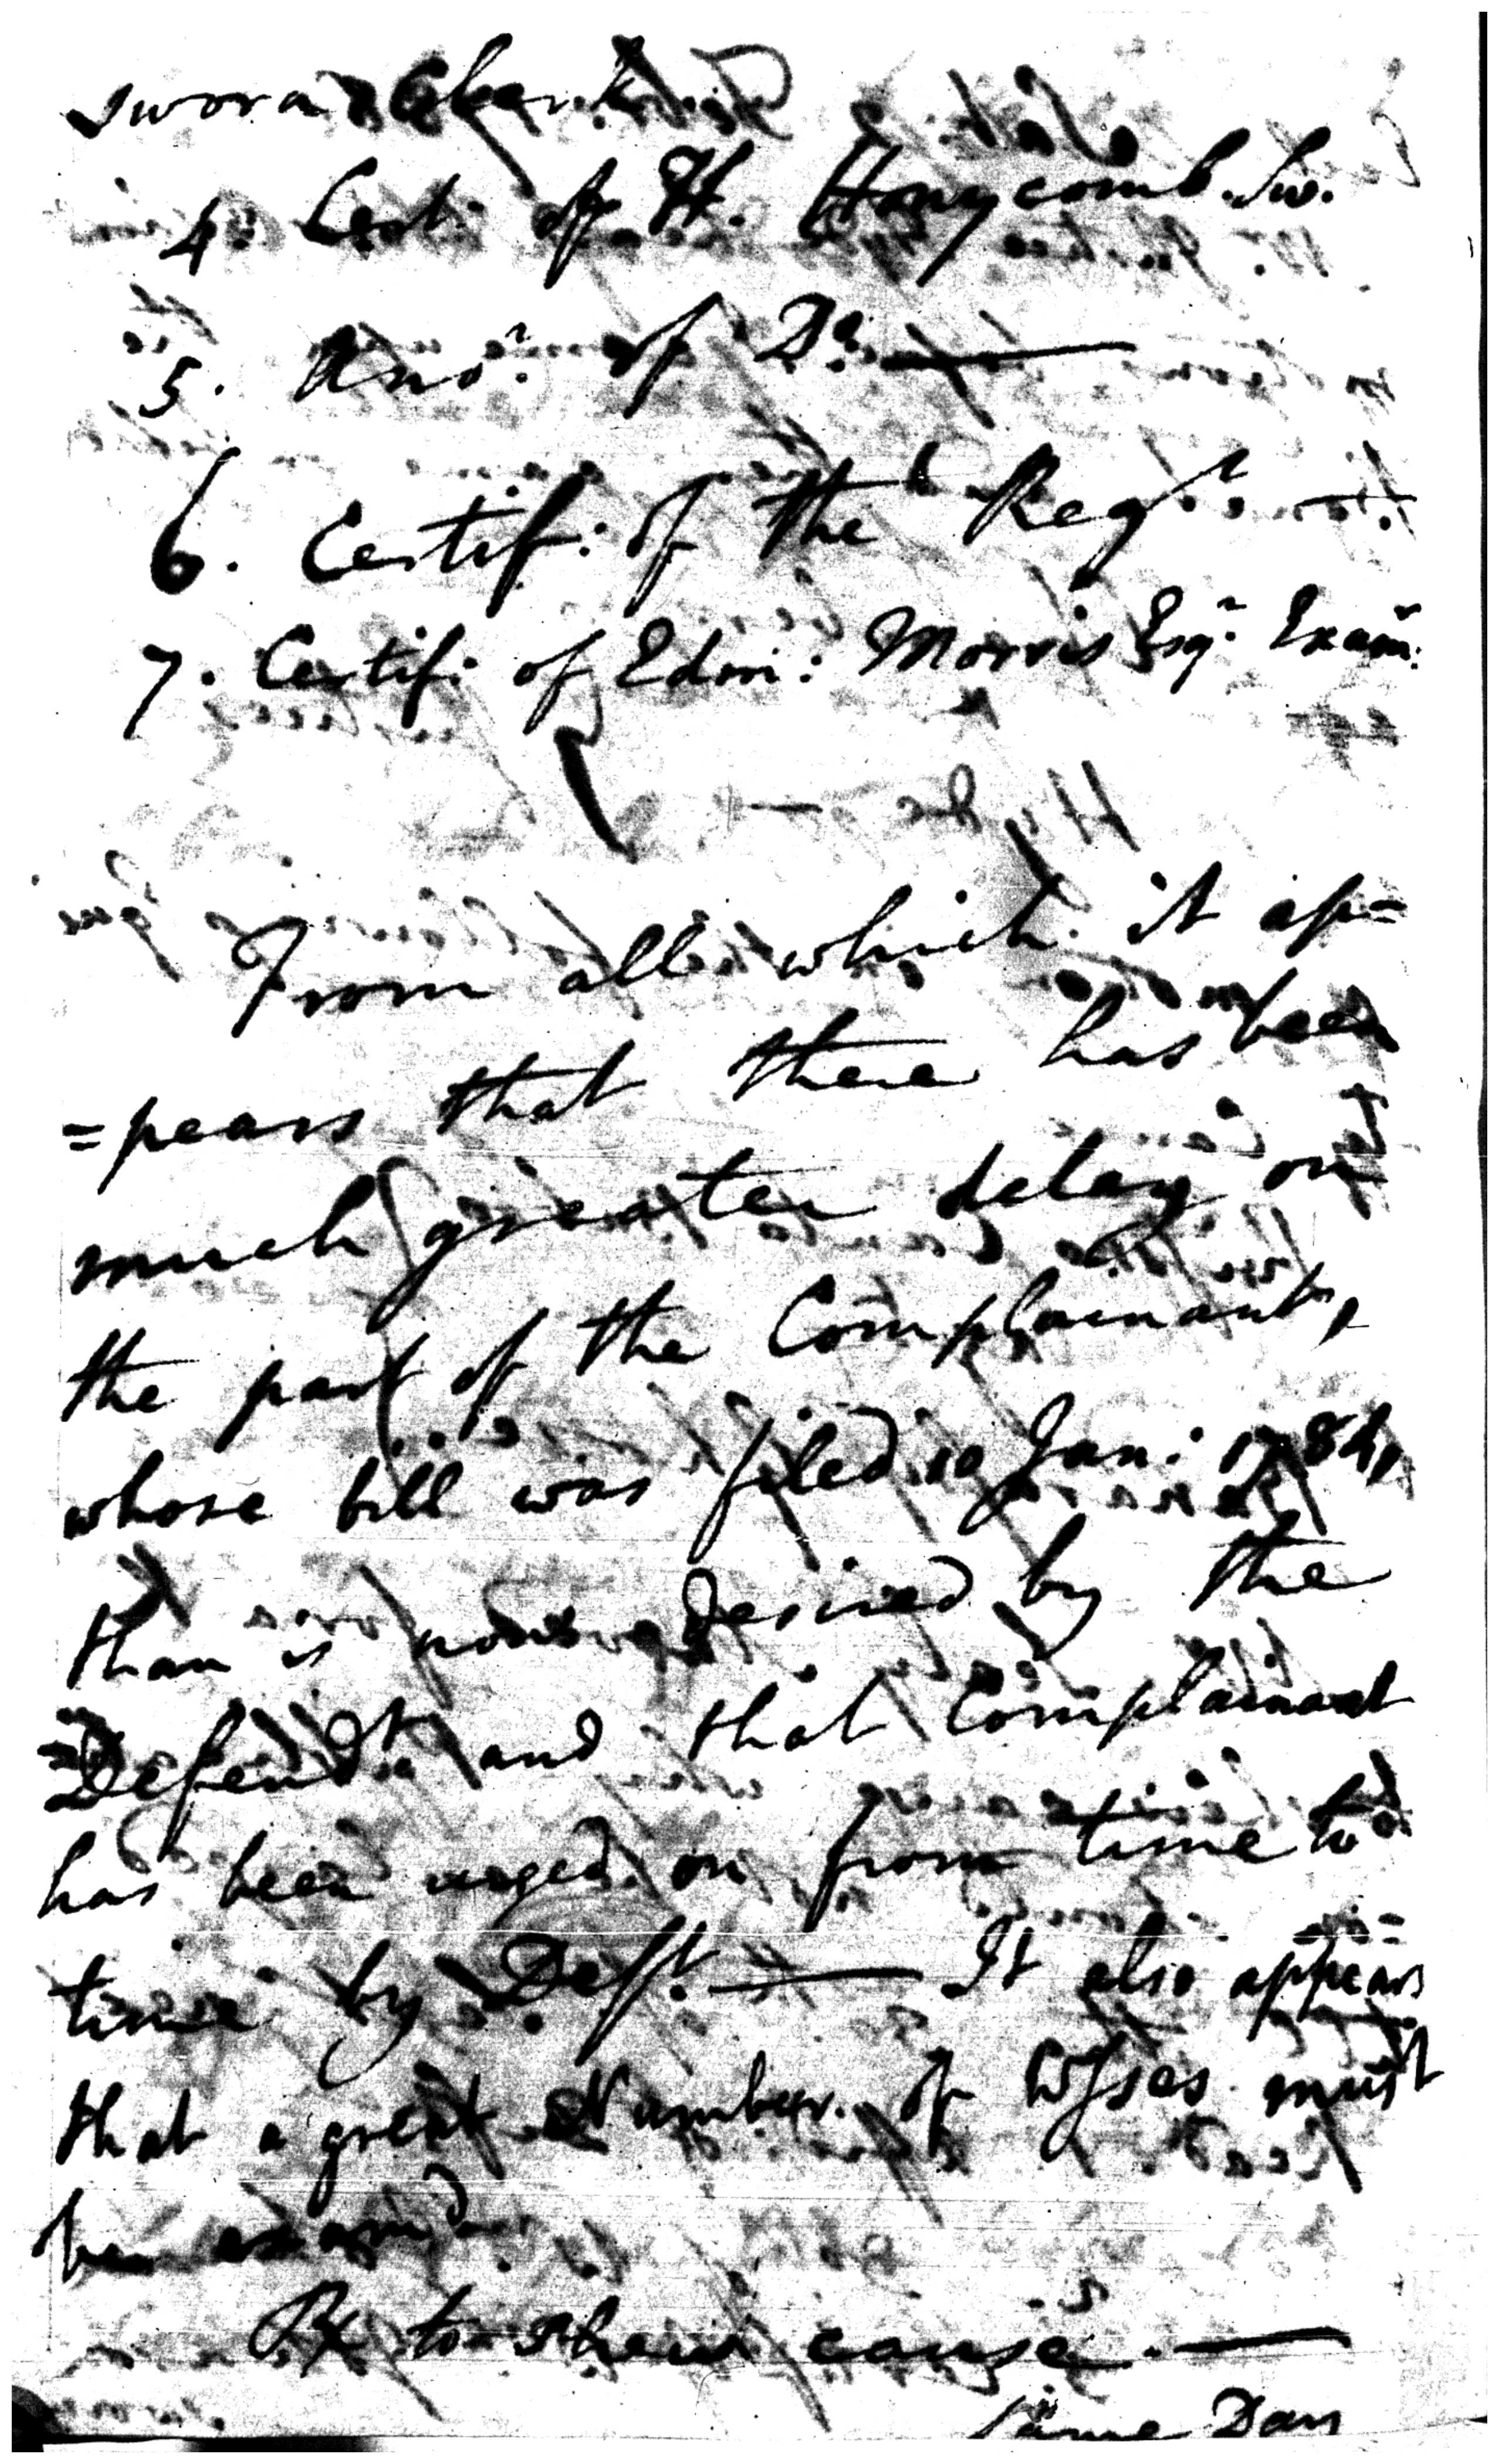 sworn
4. Cert. of H. Honycomb. Sw.
5. Anor. of Do. —
6. Certif: of the Regr
7. Certif: of Edm: Morris Esqr. Examr.
From all which it ap=
=pears that there has been
much greater delay on
the part of the Complainant,
whose bill was filed 10 Jan: 1784,
than is now desired by the
Defendt. and that Complainant
has been urged on from time to
time by Deft. — It also appears
that a great Number of Wsses must
be examd.
Rx to shew cause. —
Same Day